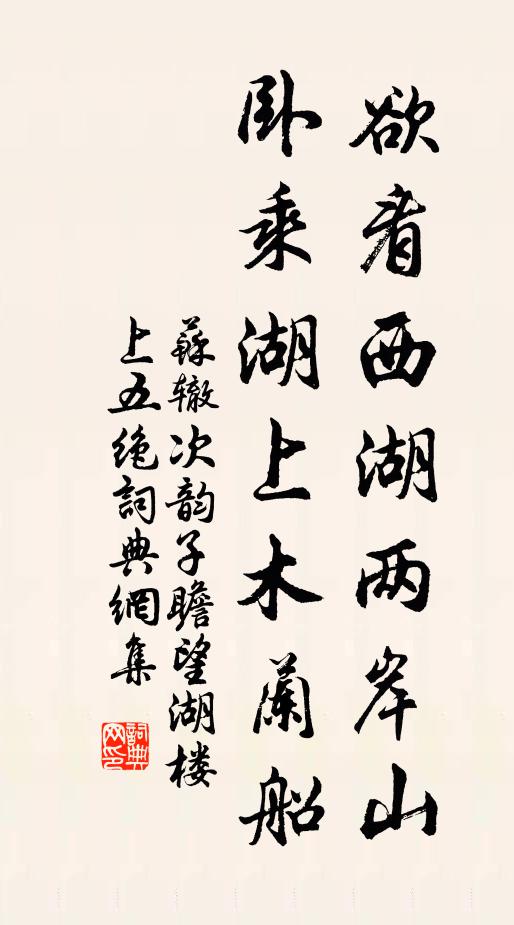 欲看西湖两岸山
卧乘湖上木蘭船
蘇辙次韵子瞻望湖楼
上五绝詞典網集
詞典
网印